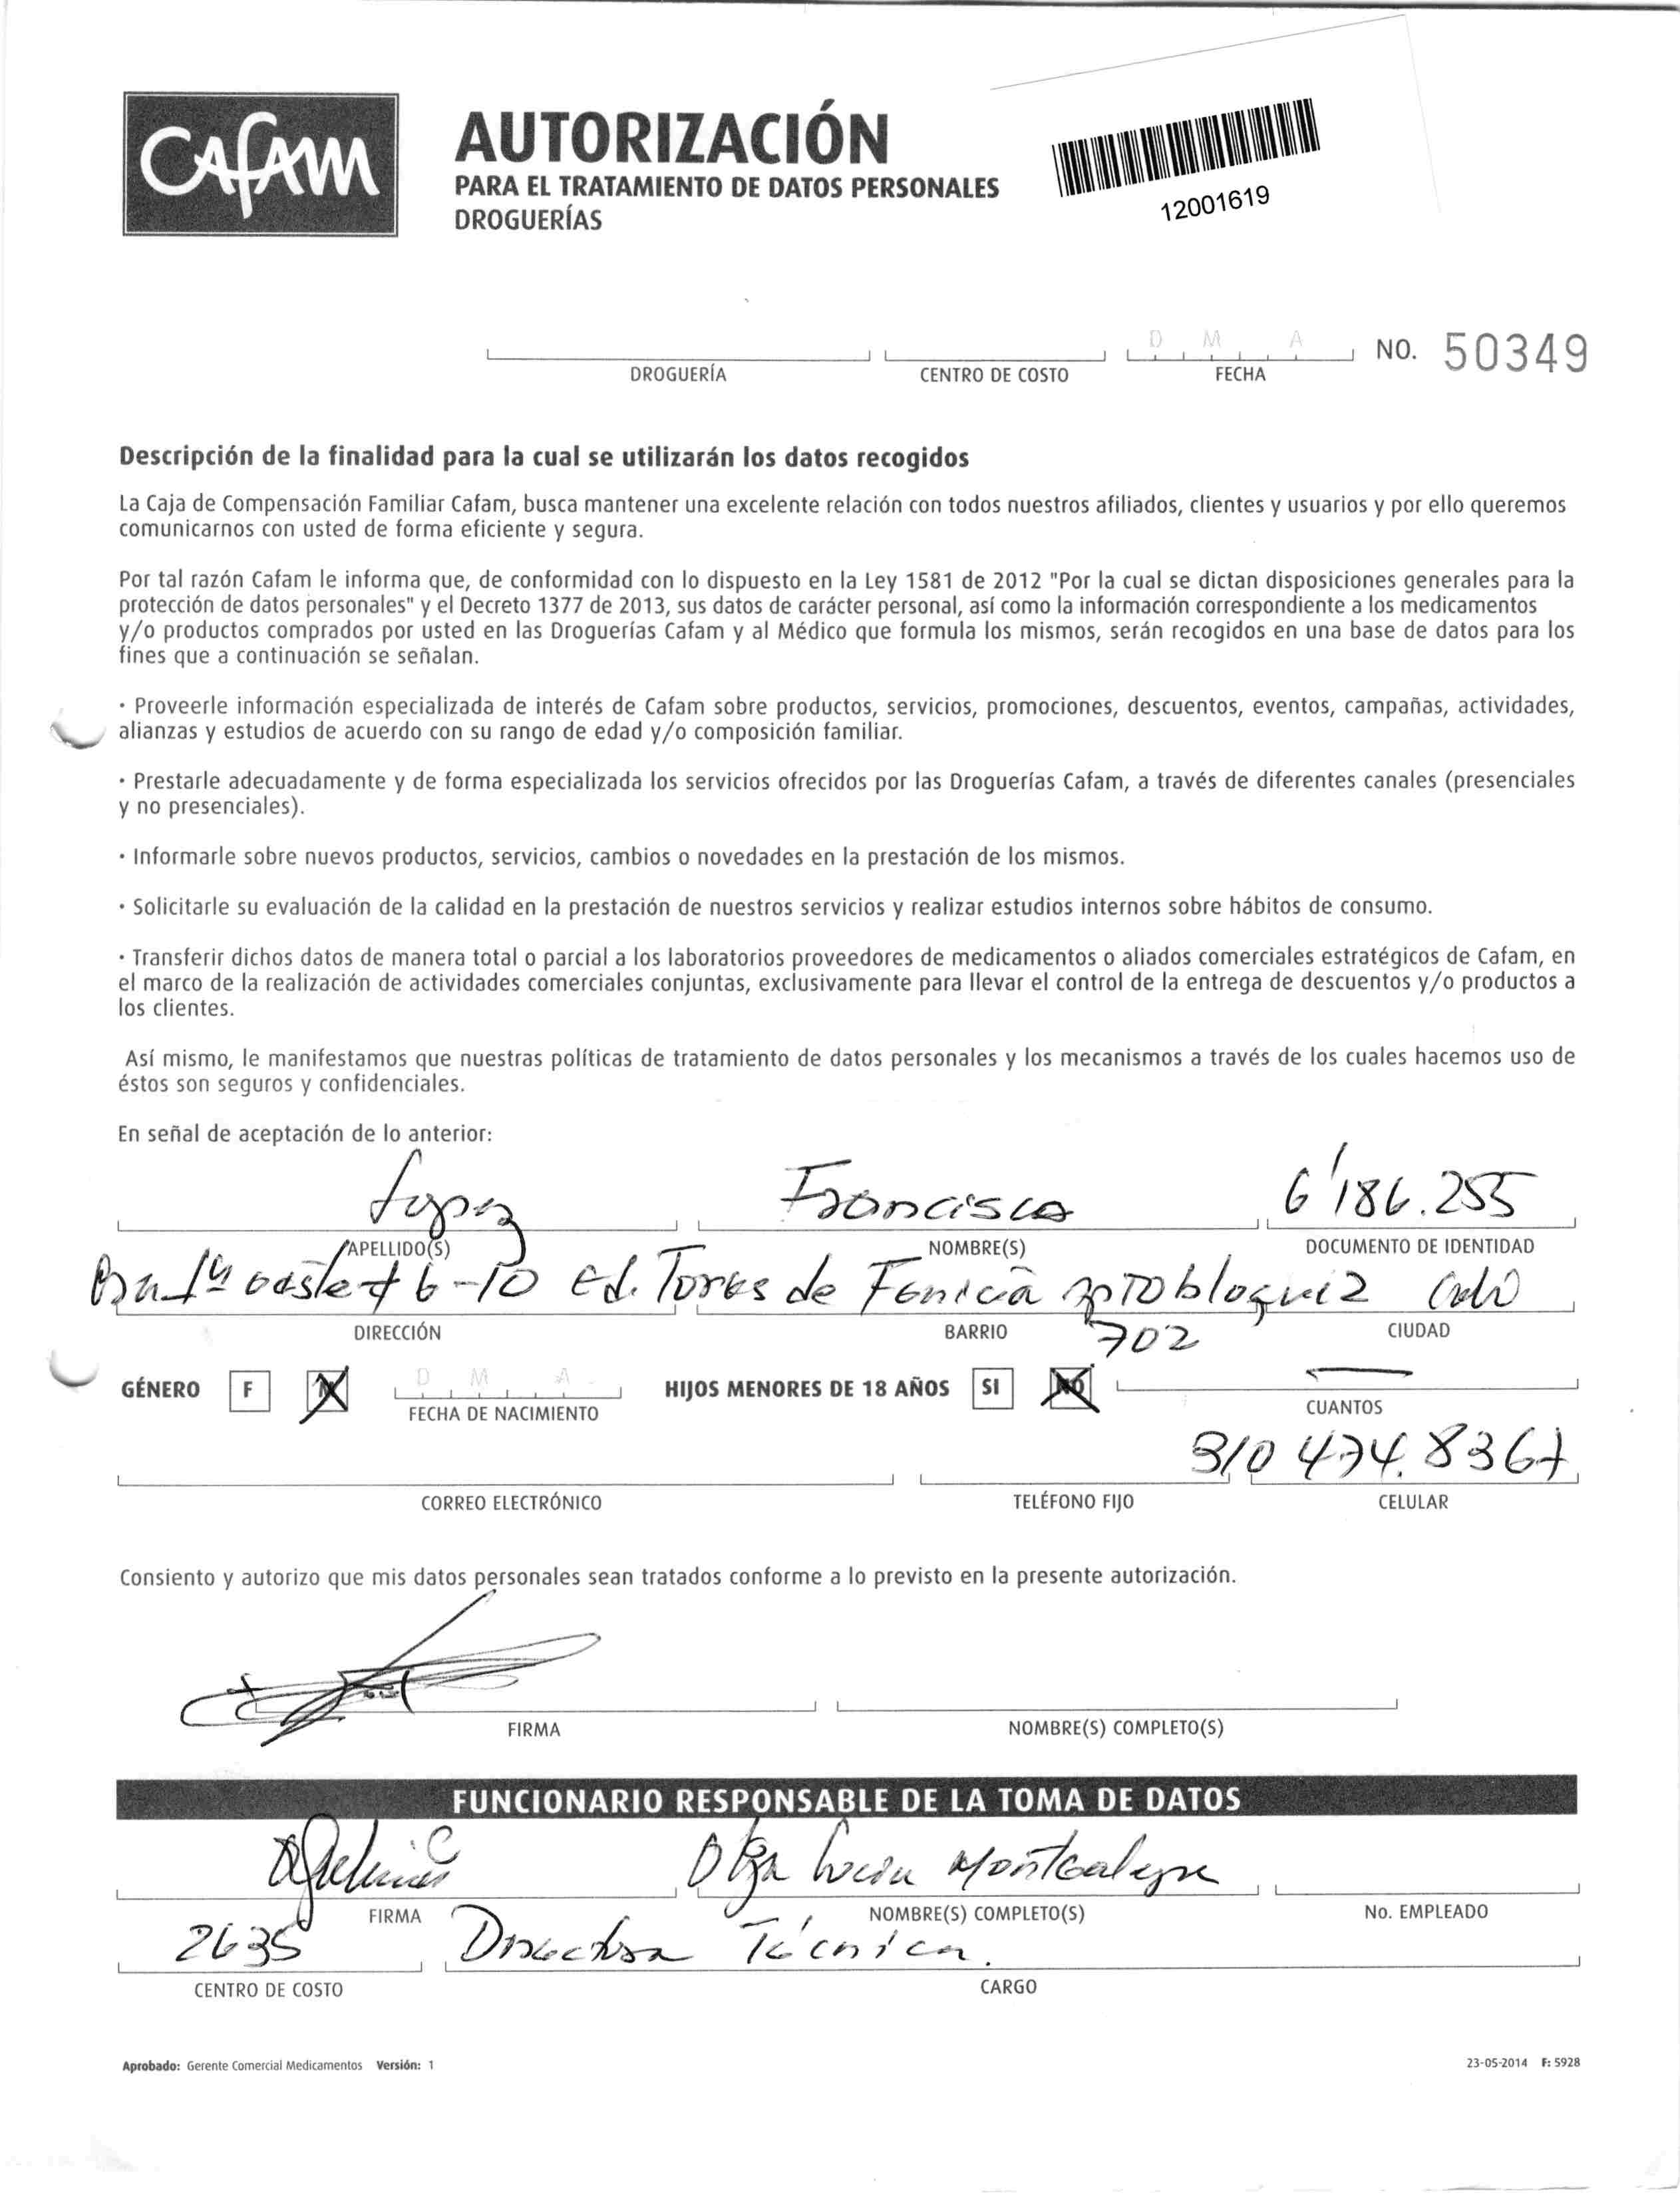 CAFAM
AUTORIZACIÓN
PARA EL TRATAMIENTO DE DATOS PERSONALES
DROGUERÍAS
12001619
D M A
NO. 50349
DROGUERÍA CENTRO DE COSTO FECHA
Descripción de la finalidad para la cual se utilizarán los datos recogidos
La Caja de Compensación Familiar Cafam, busca mantener una excelente relación con todos nuestros afiliados, clientes y usuarios y por ello queremos
comunicarnos con usted de forma eficiente y segura.
Por tal razón Cafam le informa que, de conformidad con lo dispuesto en la Ley 1581 de 2012 "Por la cual se dictan disposiciones generales para la
protección de datos personales" y el Decreto 1377 de 2013, sus datos de carácter personal, así como la información correspondiente a los medicamentos
y/o productos comprados por usted en las Droguerías Cafam y al Médico que formula los mismos, serán recogidos en una base de datos para los
fines que a continuación se señalan.
· Proveerle información especializada de interés de Cafam sobre productos, servicios, promociones, descuentos, eventos, campañas, actividades,
alianzas y estudios de acuerdo con su rango de edad y/o composición familiar.
· Prestarle adecuadamente y de forma especializada los servicios ofrecidos por las Droguerías Cafam, a través de diferentes canales (presenciales
y no presenciales).
· Informarle sobre nuevos productos, servicios, cambios o novedades en la prestación de los mismos.
· Solicitarle su evaluación de la calidad en la prestación de nuestros servicios y realizar estudios internos sobre hábitos de consumo.
· Transferir dichos datos de manera total o parcial a los laboratorios proveedores de medicamentos o aliados comerciales estratégicos de Cafam, en
el marco de la realización de actividades comerciales conjuntas, exclusivamente para llevar el control de la entrega de descuentos y/o productos a
los clientes.
Así mismo, le manifestamos que nuestras políticas de tratamiento de datos personales y los mecanismos a través de los cuales hacemos uso de
éstos son seguros y confidenciales.
En señal de aceptación de lo anterior:
Lopez Francisco 6'186.255
APELLIDO(S) NOMBRE(S) DOCUMENTO DE IDENTIDAD
oeste # 6-10 Ed. Torres de Fenicia apto bloque 2 Cali
702
DIRECCIÓN BARRIO CIUDAD
GÉNERO F M D M A HIJOS MENORES DE 18 AÑOS SI NO
FECHA DE NACIMIENTO CUANTOS
310 474.8367
CORREO ELECTRÓNICO TELÉFONO FIJO CELULAR
Consiento y autorizo que mis datos personales sean tratados conforme a lo previsto en la presente autorización.
FIRMA NOMBRE(S) COMPLETO(S)
FUNCIONARIO RESPONSABLE DE LA TOMA DE DATOS
Olga Lucia Montealegre
FIRMA NOMBRE(S) COMPLETO(S) No. EMPLEADO
2635 Directora Técnica.
CENTRO DE COSTO CARGO
Aprobado: Gerente Comercial Medicamentos Versión: 1
23-05-2014 F: 5928